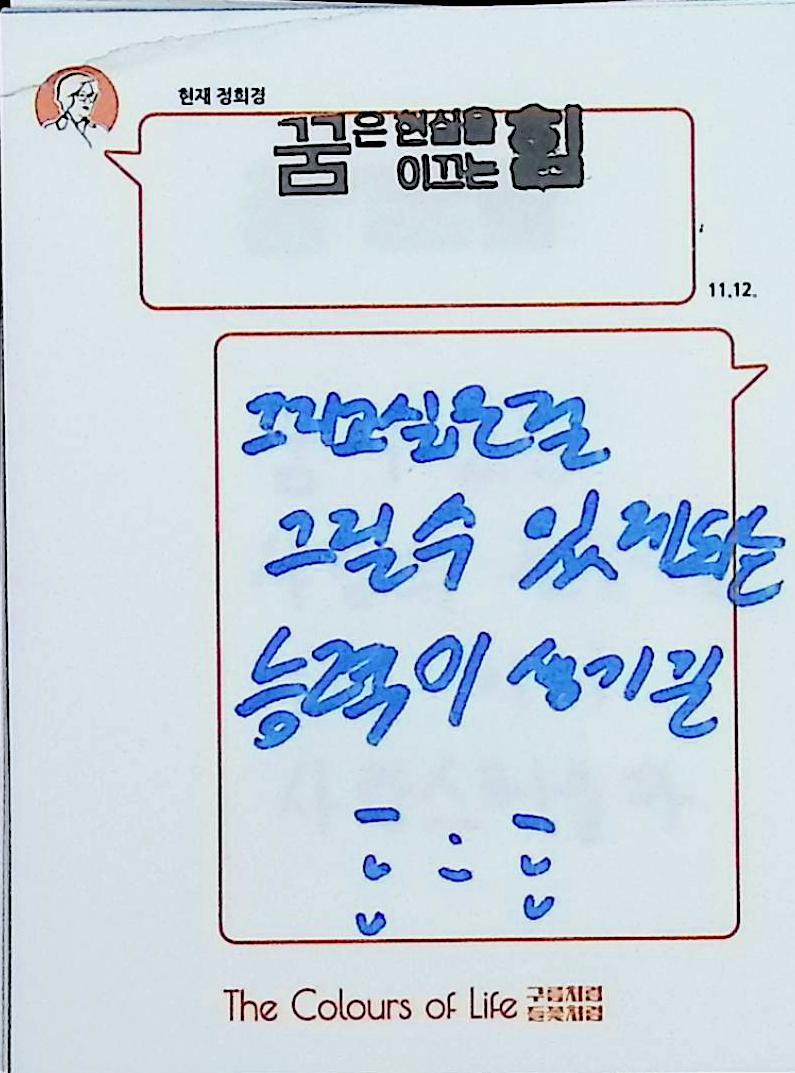 현재 정희경
꿈은 현실을
이끄는 힘
11.12.
그리고싶은걸
그릴수 있게되는
능력이 생기길
The Colours of Life 구름처럼
들꽃처럼